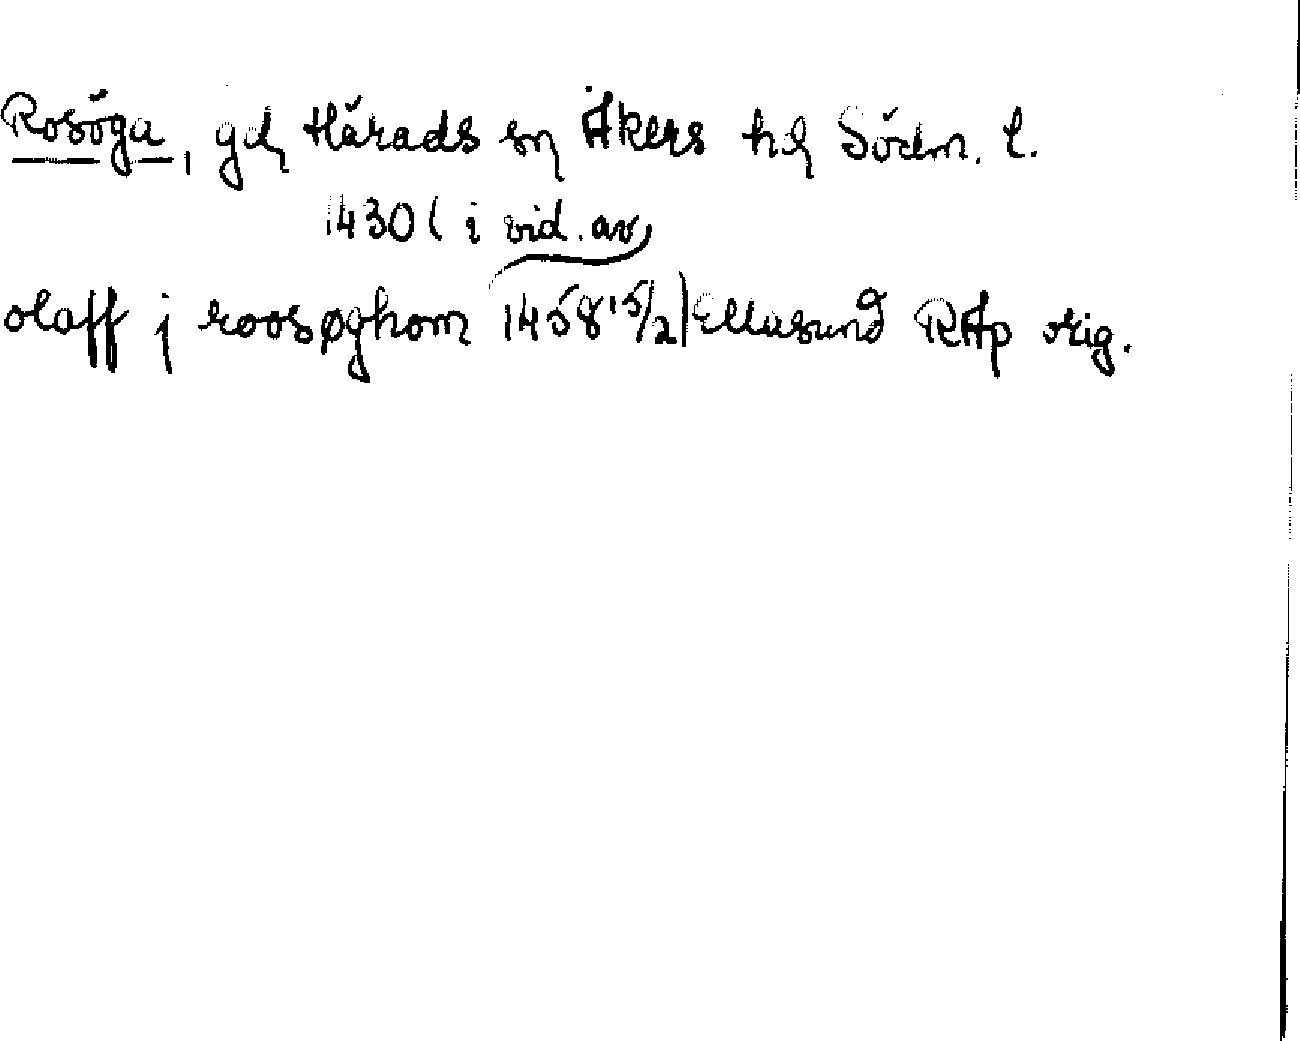 Rosöga, gd, Härads sn Åkers hd Södm. l.
1430 ( i vid. av
olaff j roosøghom 1458 15/2) Ellasund RAp orig.